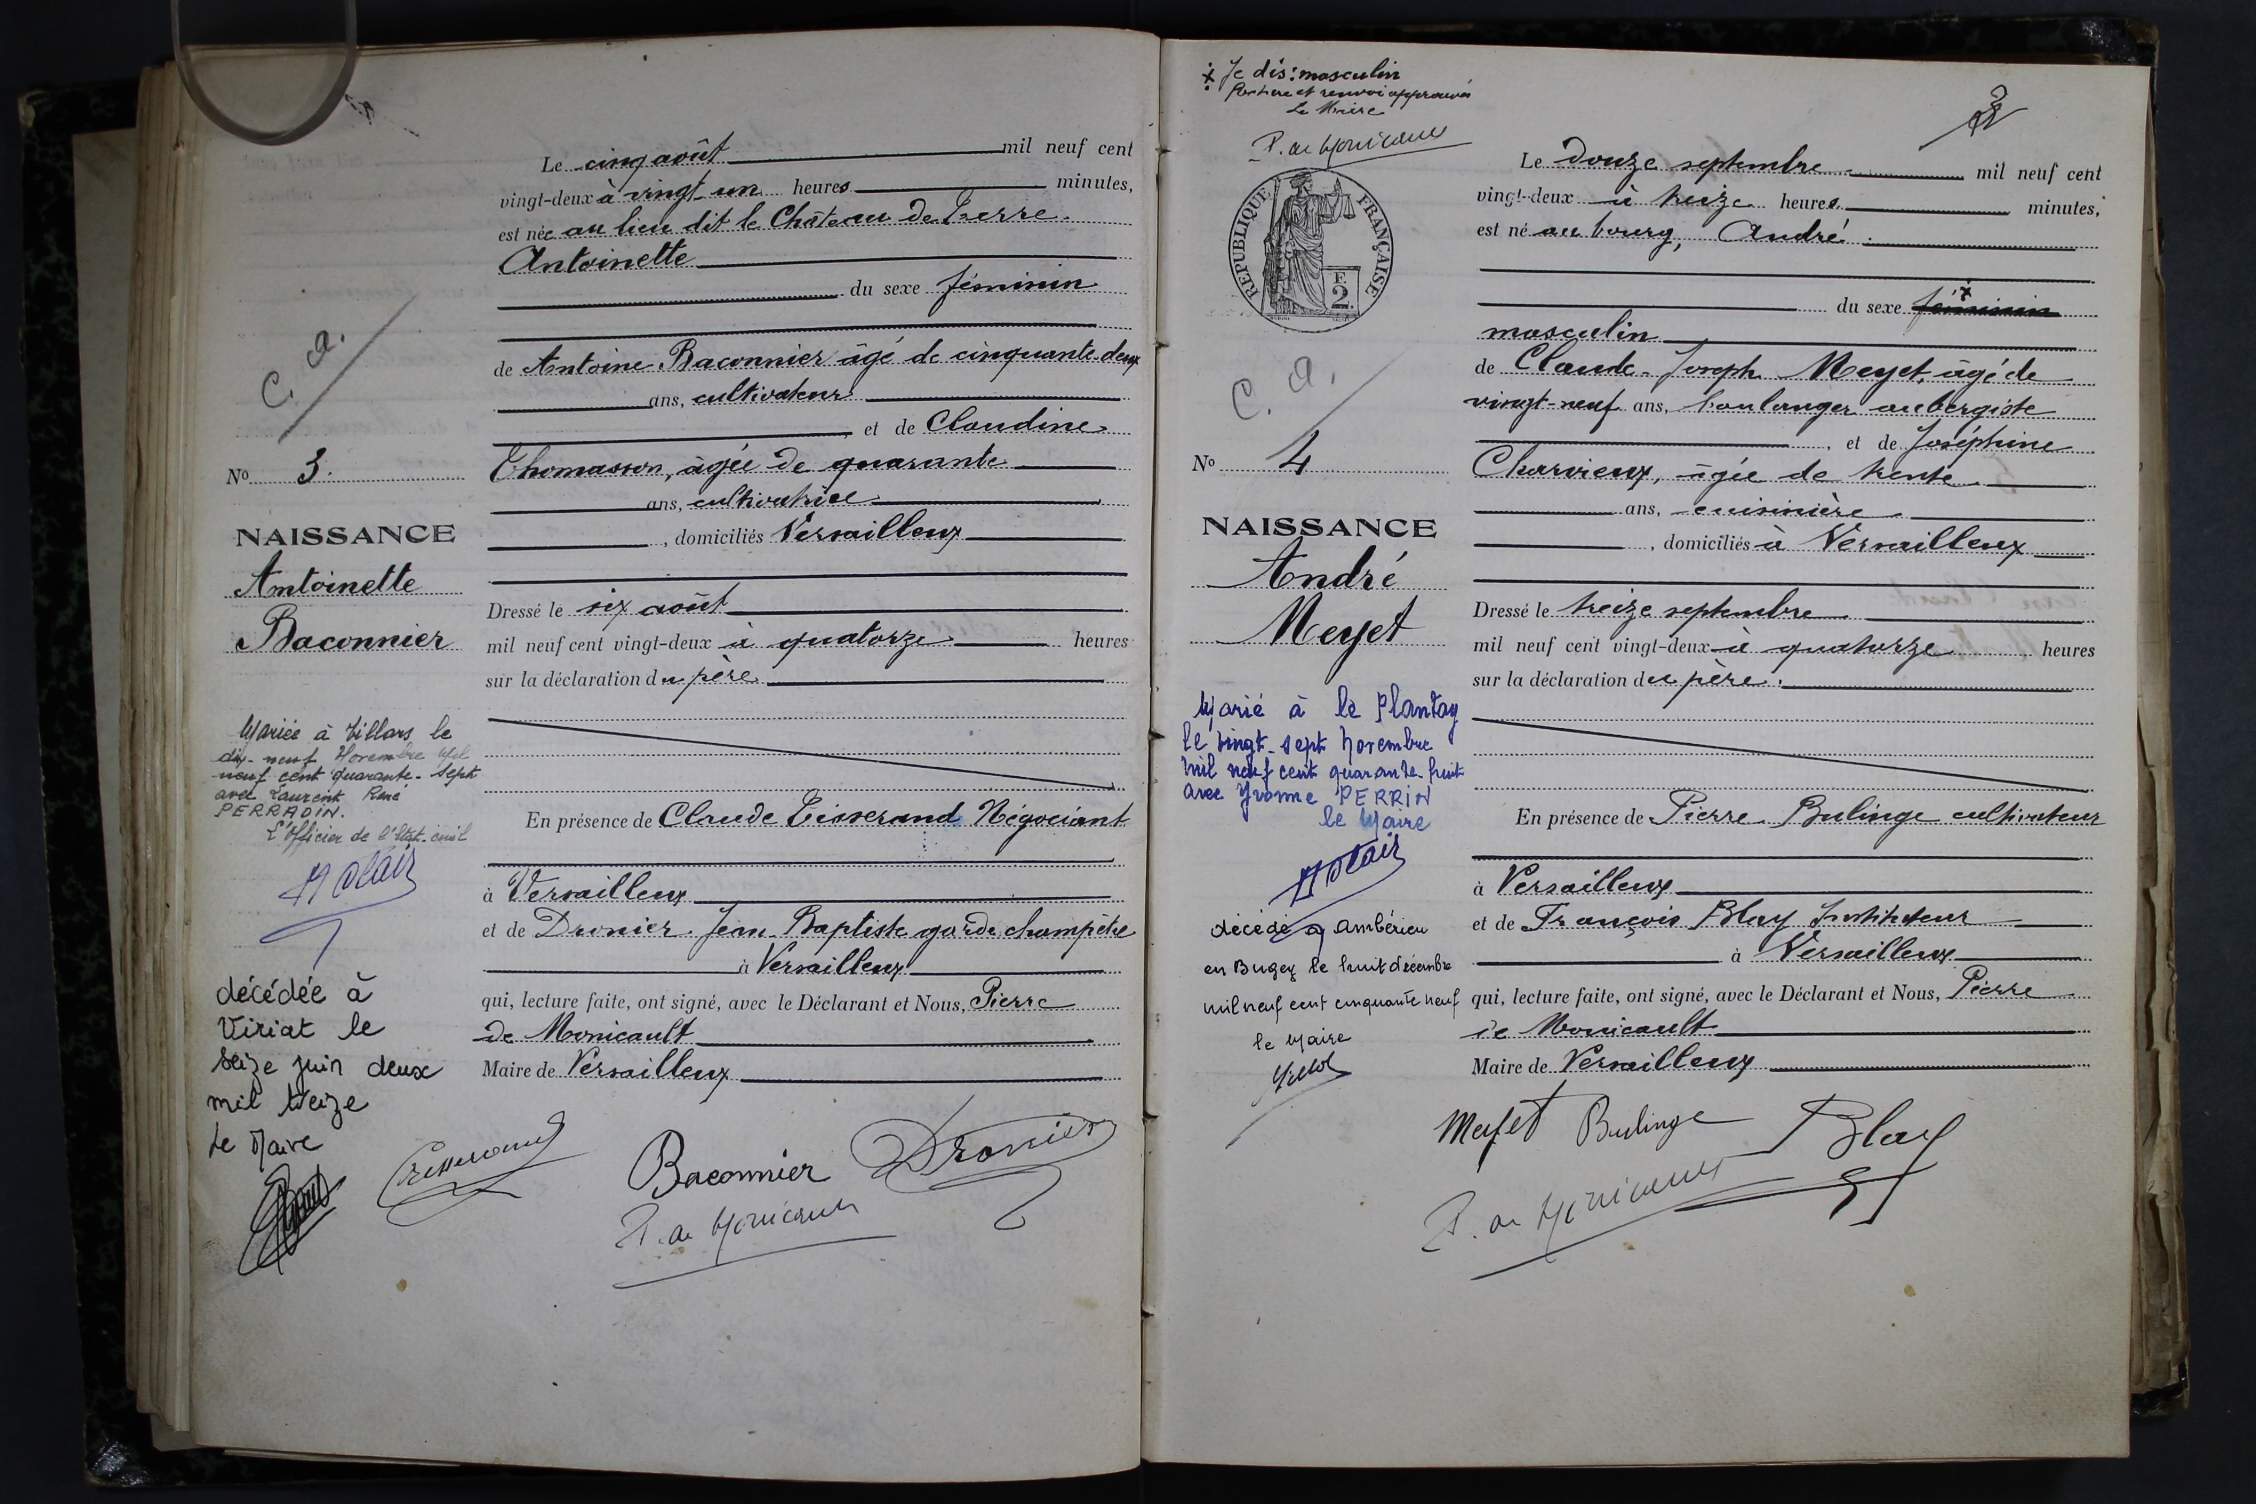 Le cinq août mil neuf cent
vingt-deux à vingt un heures minutes,
est née au lieu dit le Château de Terre
Antoinette
du sexe féminin
de Antoine Baconnier âgé de cinquante-deux
ans, cultivateur
et de Claudine
Thomasson, âgée de quarante
ans, cultivatrice
, domiciliés Versailleux
Dressé le six août
mil neuf cent vingt-deux à quatorze heures
sur la déclaration du père
En présence de Claude Tisserand Négociant
à Versailleux
et de Dronier Jean-Baptiste garde champêtre
à Versailleux
qui, lecture faite, ont signé, avec le Déclarant et Nous, Pierre
de Monicault
Maire de Versailleux
Baconnier Dronier
P. de Monicault
C. a.
No 3.
NAISSANCE
Antoinette
Baconnier
Mariée à Villars le
dix-neuf Novembre Mil
neuf cent quarante-sept
avec Laurent René
PERRADIN.
L'Officier de l'état-civil
décédée à
Viriat le
seize juin deux
mil treize
Le Maire
Je dis: masculin
Le Maire
P. de Monicault
REPUBLIQUE FRANÇAISE
F.
2.
C. a.
No 4
NAISSANCE
André
Meyet
Marié à le Plantay
le vingt-sept Novembre
Mil neuf cent quarante-huit
avec Yvonne PERRIN
le Maire
décédé à Ambérieu
en Bugey le huit décembre
mil neuf cent cinquante neuf
le Maire
Le Douze septembre mil neuf cent
vingt-deux à treize heures minutes,
est né au bourg, André
du sexe féminin
masculin
de Claude-Joseph Meyet, âgé de
vingt-neuf ans, boulanger aubergiste
, et de Joséphine
Charvieux, âgée de trente
ans, cuisinière
, domiciliés à Versailleux
Dressé le treize septembre
mil neuf cent vingt-deux à quatorze heures
sur la déclaration du père.
En présence de Pierre Bulinge cultivateur
à Versailleux
et de François Blay Instituteur
à Versailleux
qui, lecture faite, ont signé, avec le Déclarant et Nous, Pierre
de Monicault
Maire de Versailleux
Meyet Bulinge Blay
P. de Monicault